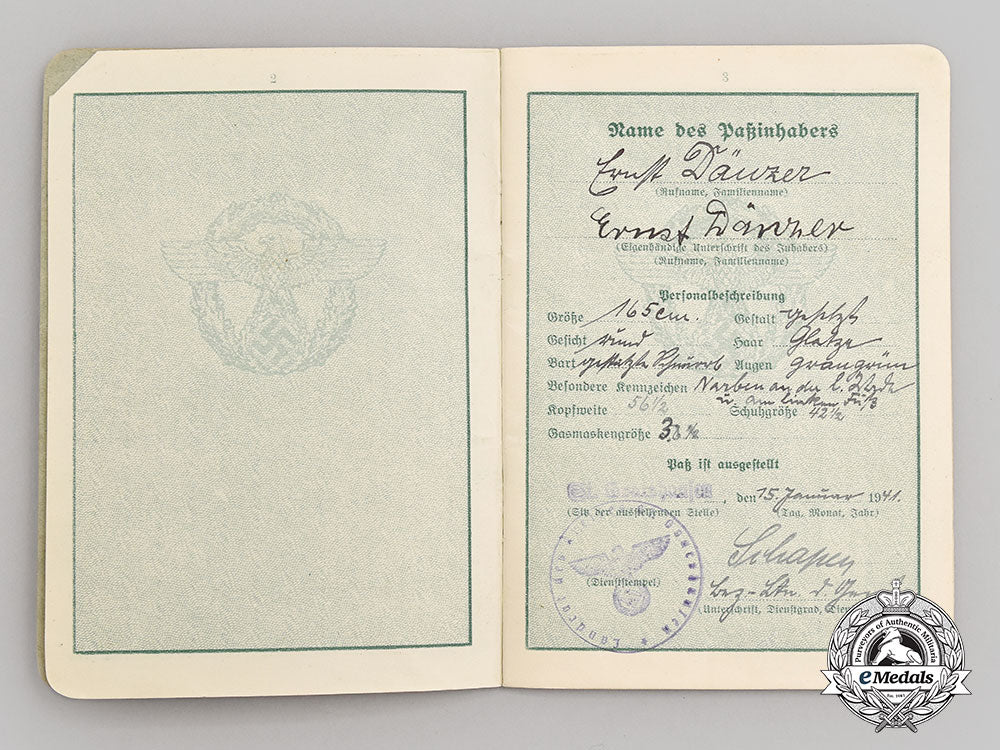 2
3
Name des Paßinhabers
Ernst Dänzer
(Rufname, Familienname)
Ernst Dänzer
(Eigenhändige Unterschrift des Inhabers)
(Rufname, Familienname)
Personalbeschreibung
Größe 165 cm. Gestalt gesetzt
Gesicht rund Haar Glatze
Bart gestutzter Schnurrb Augen graugrün
Besondere Kennzeichen Narben an der l. Wade
u. am linken Fuß
Kopfweite 56½ Schuhgröße 42½
Gasmaskengröße 3
Paß ist ausgestellt
, den 15. Januar 1941.
(Sitz der ausstellenden Stelle) (Tag, Monat, Jahr)
Landrat
(Dienststempel)
Bez.-Ltn. d. Gen
(Unterschrift, Dienstgrad, Dien
Purveyors of Authentic Militaria
eMedals